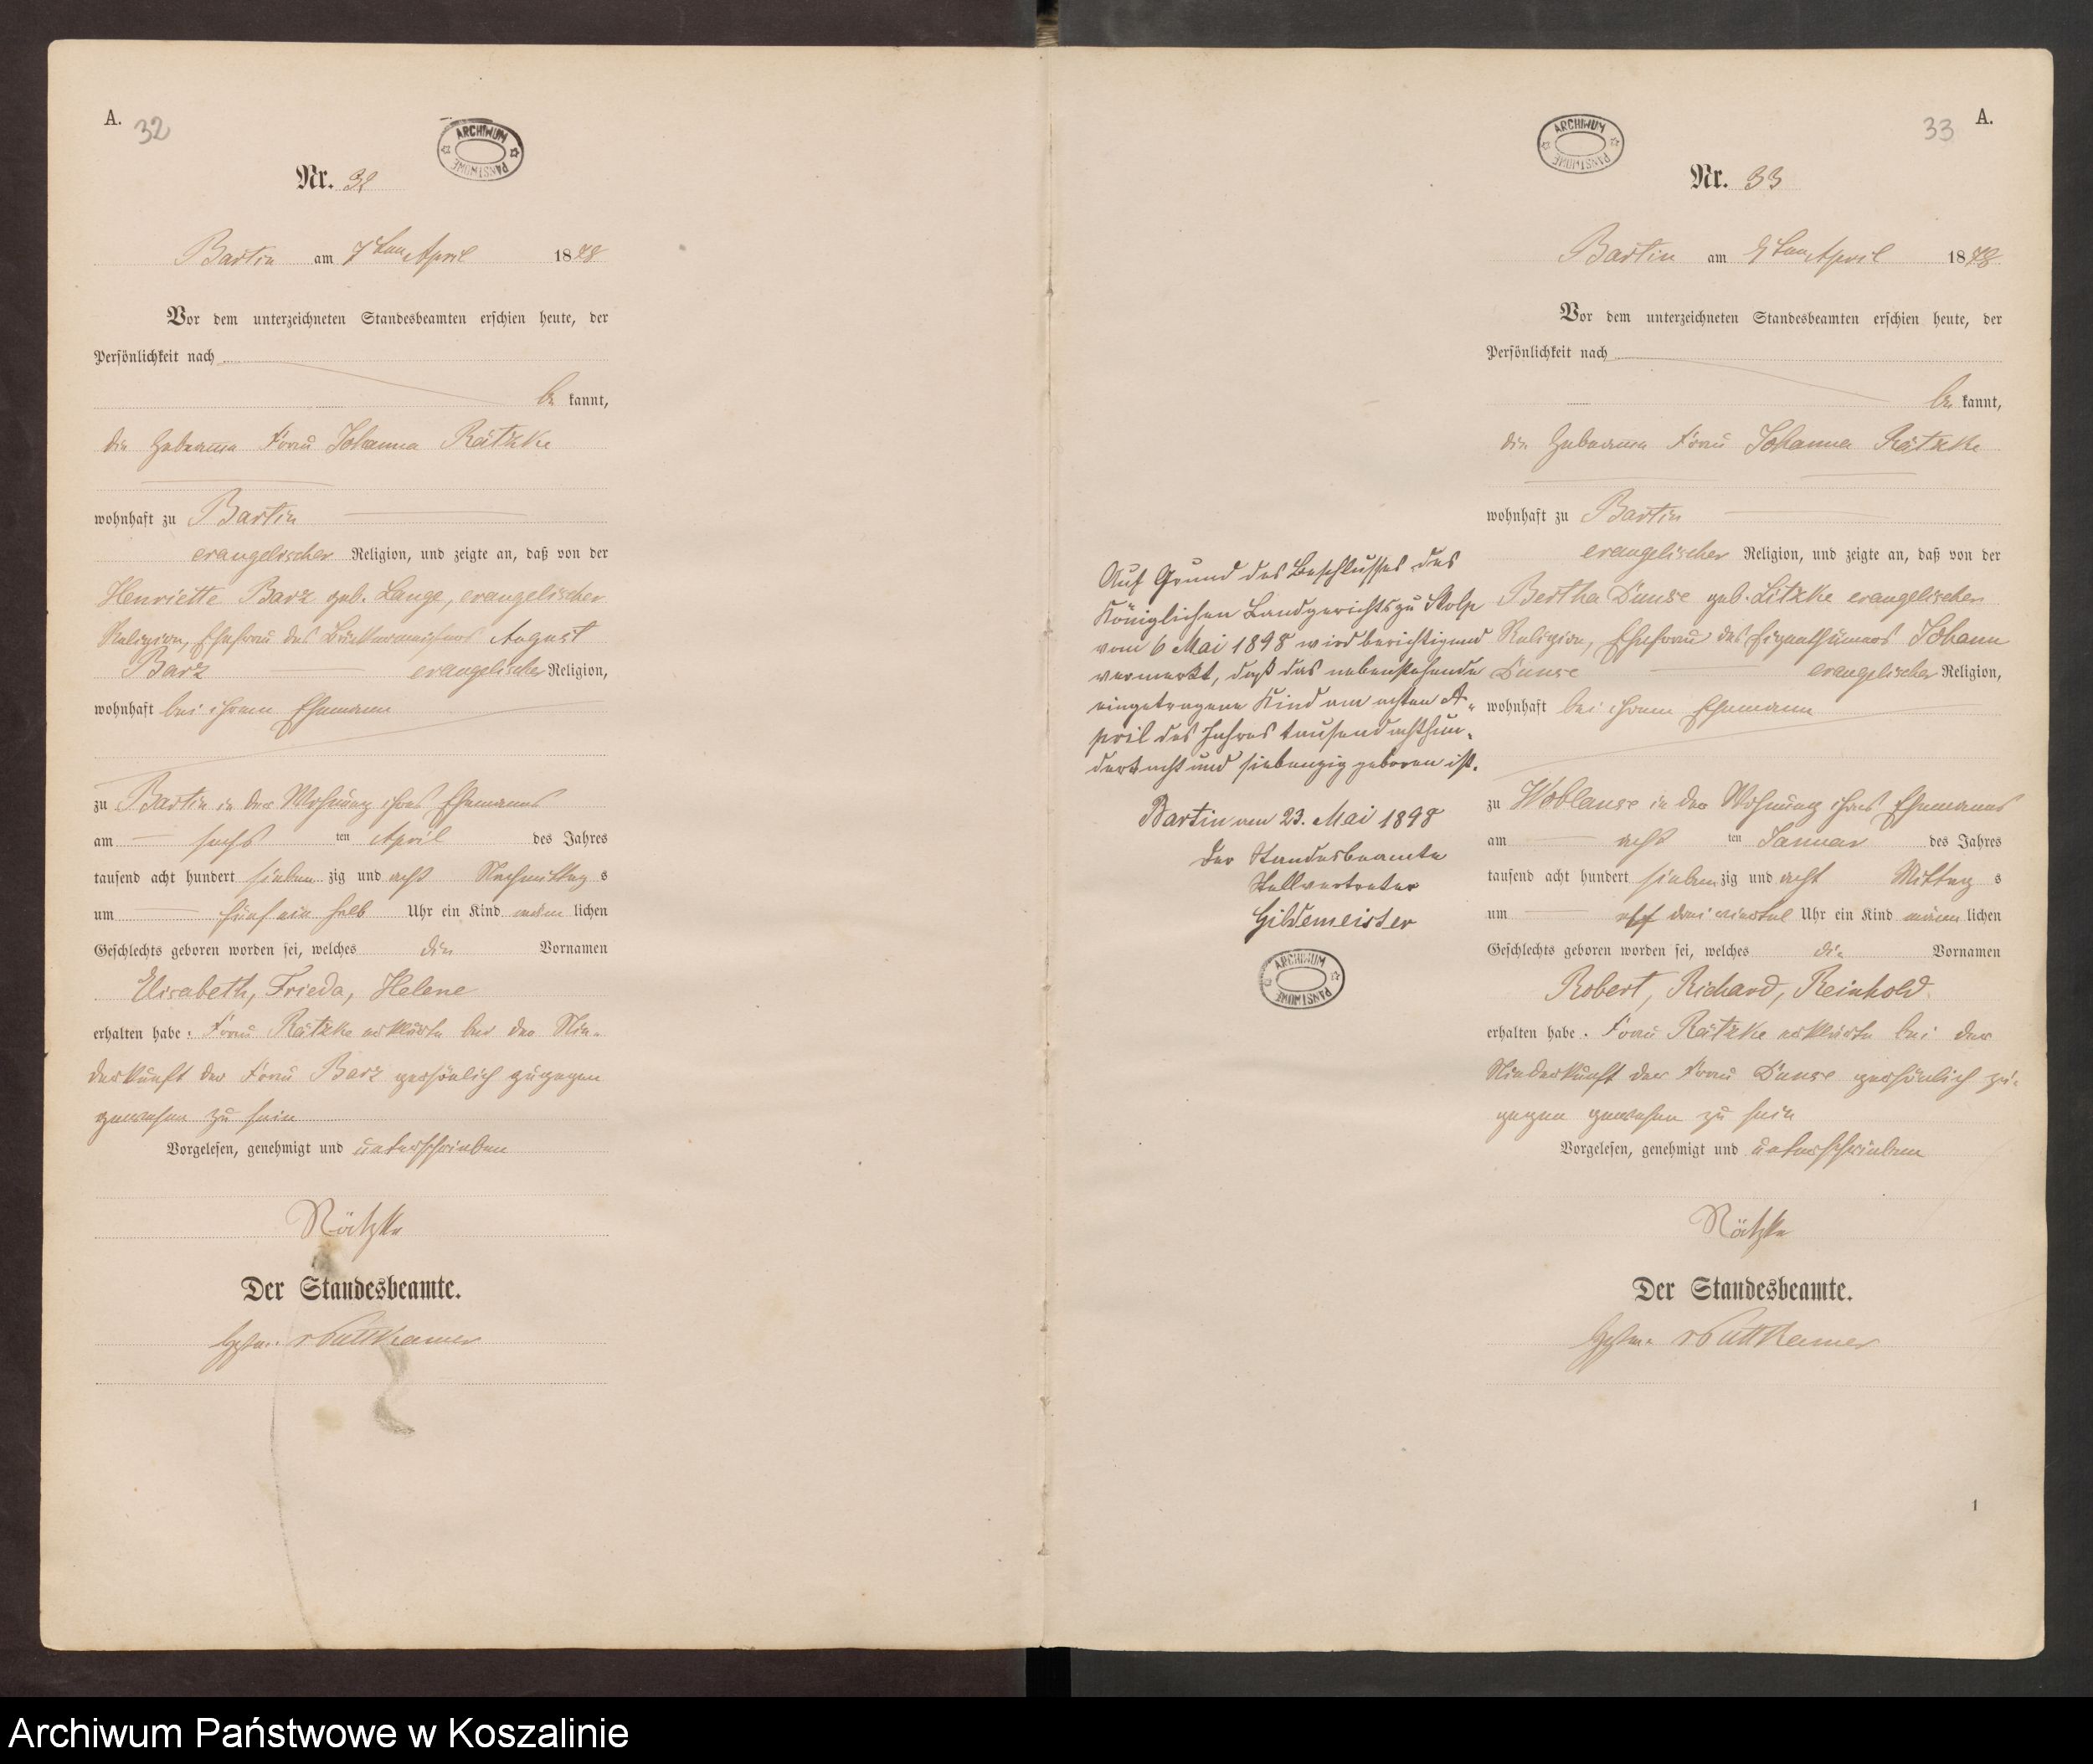 A. 32
ARCHIWUM PAŃSTWOWE
Nr. 32
Bartin am 7ten April 1878
Vor dem unterzeichneten Standesbeamten erschien heute, der
Persönlichkeit nach
be kannt,
die Hebamme Frau Johanna Rätzke
wohnhaft zu Bartin
evangelischer Religion, und zeigte an, daß von der
Henriette Barz geb. Lange, evangelischer
Religion, Ehefrau des August
Barz evangelischer Religion,
wohnhaft bei ihrem Ehemann
zu Bartin in der Wohnung ihres Ehemanns
am sechs ten April des Jahres
tausend acht hundert sieben zig und acht Nachmittag s
um fünf ein halb Uhr ein Kind lichen
Geschlechts geboren worden sei, welches die Vornamen
Elisabeth, Frieda, Helene
erhalten habe. Frau Rätzke erklärte bei der Nie-
derkunft der Frau Barz persönlich zugegen
gewesen zu sein
Vorgelesen, genehmigt und unterschrieben
Rätzke
Der Standesbeamte.
v Puttkamer
33 A.
ARCHIWUM PAŃSTWOWE
Nr. 33
Bartin am 9ten April 1878
Vor dem unterzeichneten Standesbeamten erschien heute, der
Persönlichkeit nach
be kannt,
die Hebamme Frau Johanna Rätzke
wohnhaft zu Bartin
evangelischer Religion, und zeigte an, daß von der
Bertha Dunse geb. Litzke evangelischer
Religion, Ehefrau des Eigenthümers Johann
Dunse evangelischer Religion,
wohnhaft bei ihrem Ehemann
zu Woblanse in der Wohnung ihres Ehemanns
am acht ten Januar des Jahres
tausend acht hundert sieben zig und acht Mittag s
um elf drei viertel Uhr ein Kind männ lichen
Geschlechts geboren worden sei, welches die Vornamen
Robert, Richard, Reinhold
erhalten habe. Frau Rätzke erklärte bei der
Niederkunft der Frau Dunse persönlich zu-
gegen gewesen zu sein
Vorgelesen, genehmigt und unterschrieben
Rätzke
Der Standesbeamte.
v Puttkamer
Auf Grund des Beschlusses des
Königlichen Landgerichts zu Stolp
vom 6 Mai 1898 wird berichtigend
vermerkt, daß das nebenstehende
eingetragene Kind am achten A-
pril des Jahres tausend achthun-
dert acht und siebenzig geboren ist.
Bartin am 23. Mai 1898
Der Standesbeamte
Stellvertreter
Gildemeister
ARCHIWUM PAŃSTWOWE
1
Archiwum Państwowe w Koszalinie